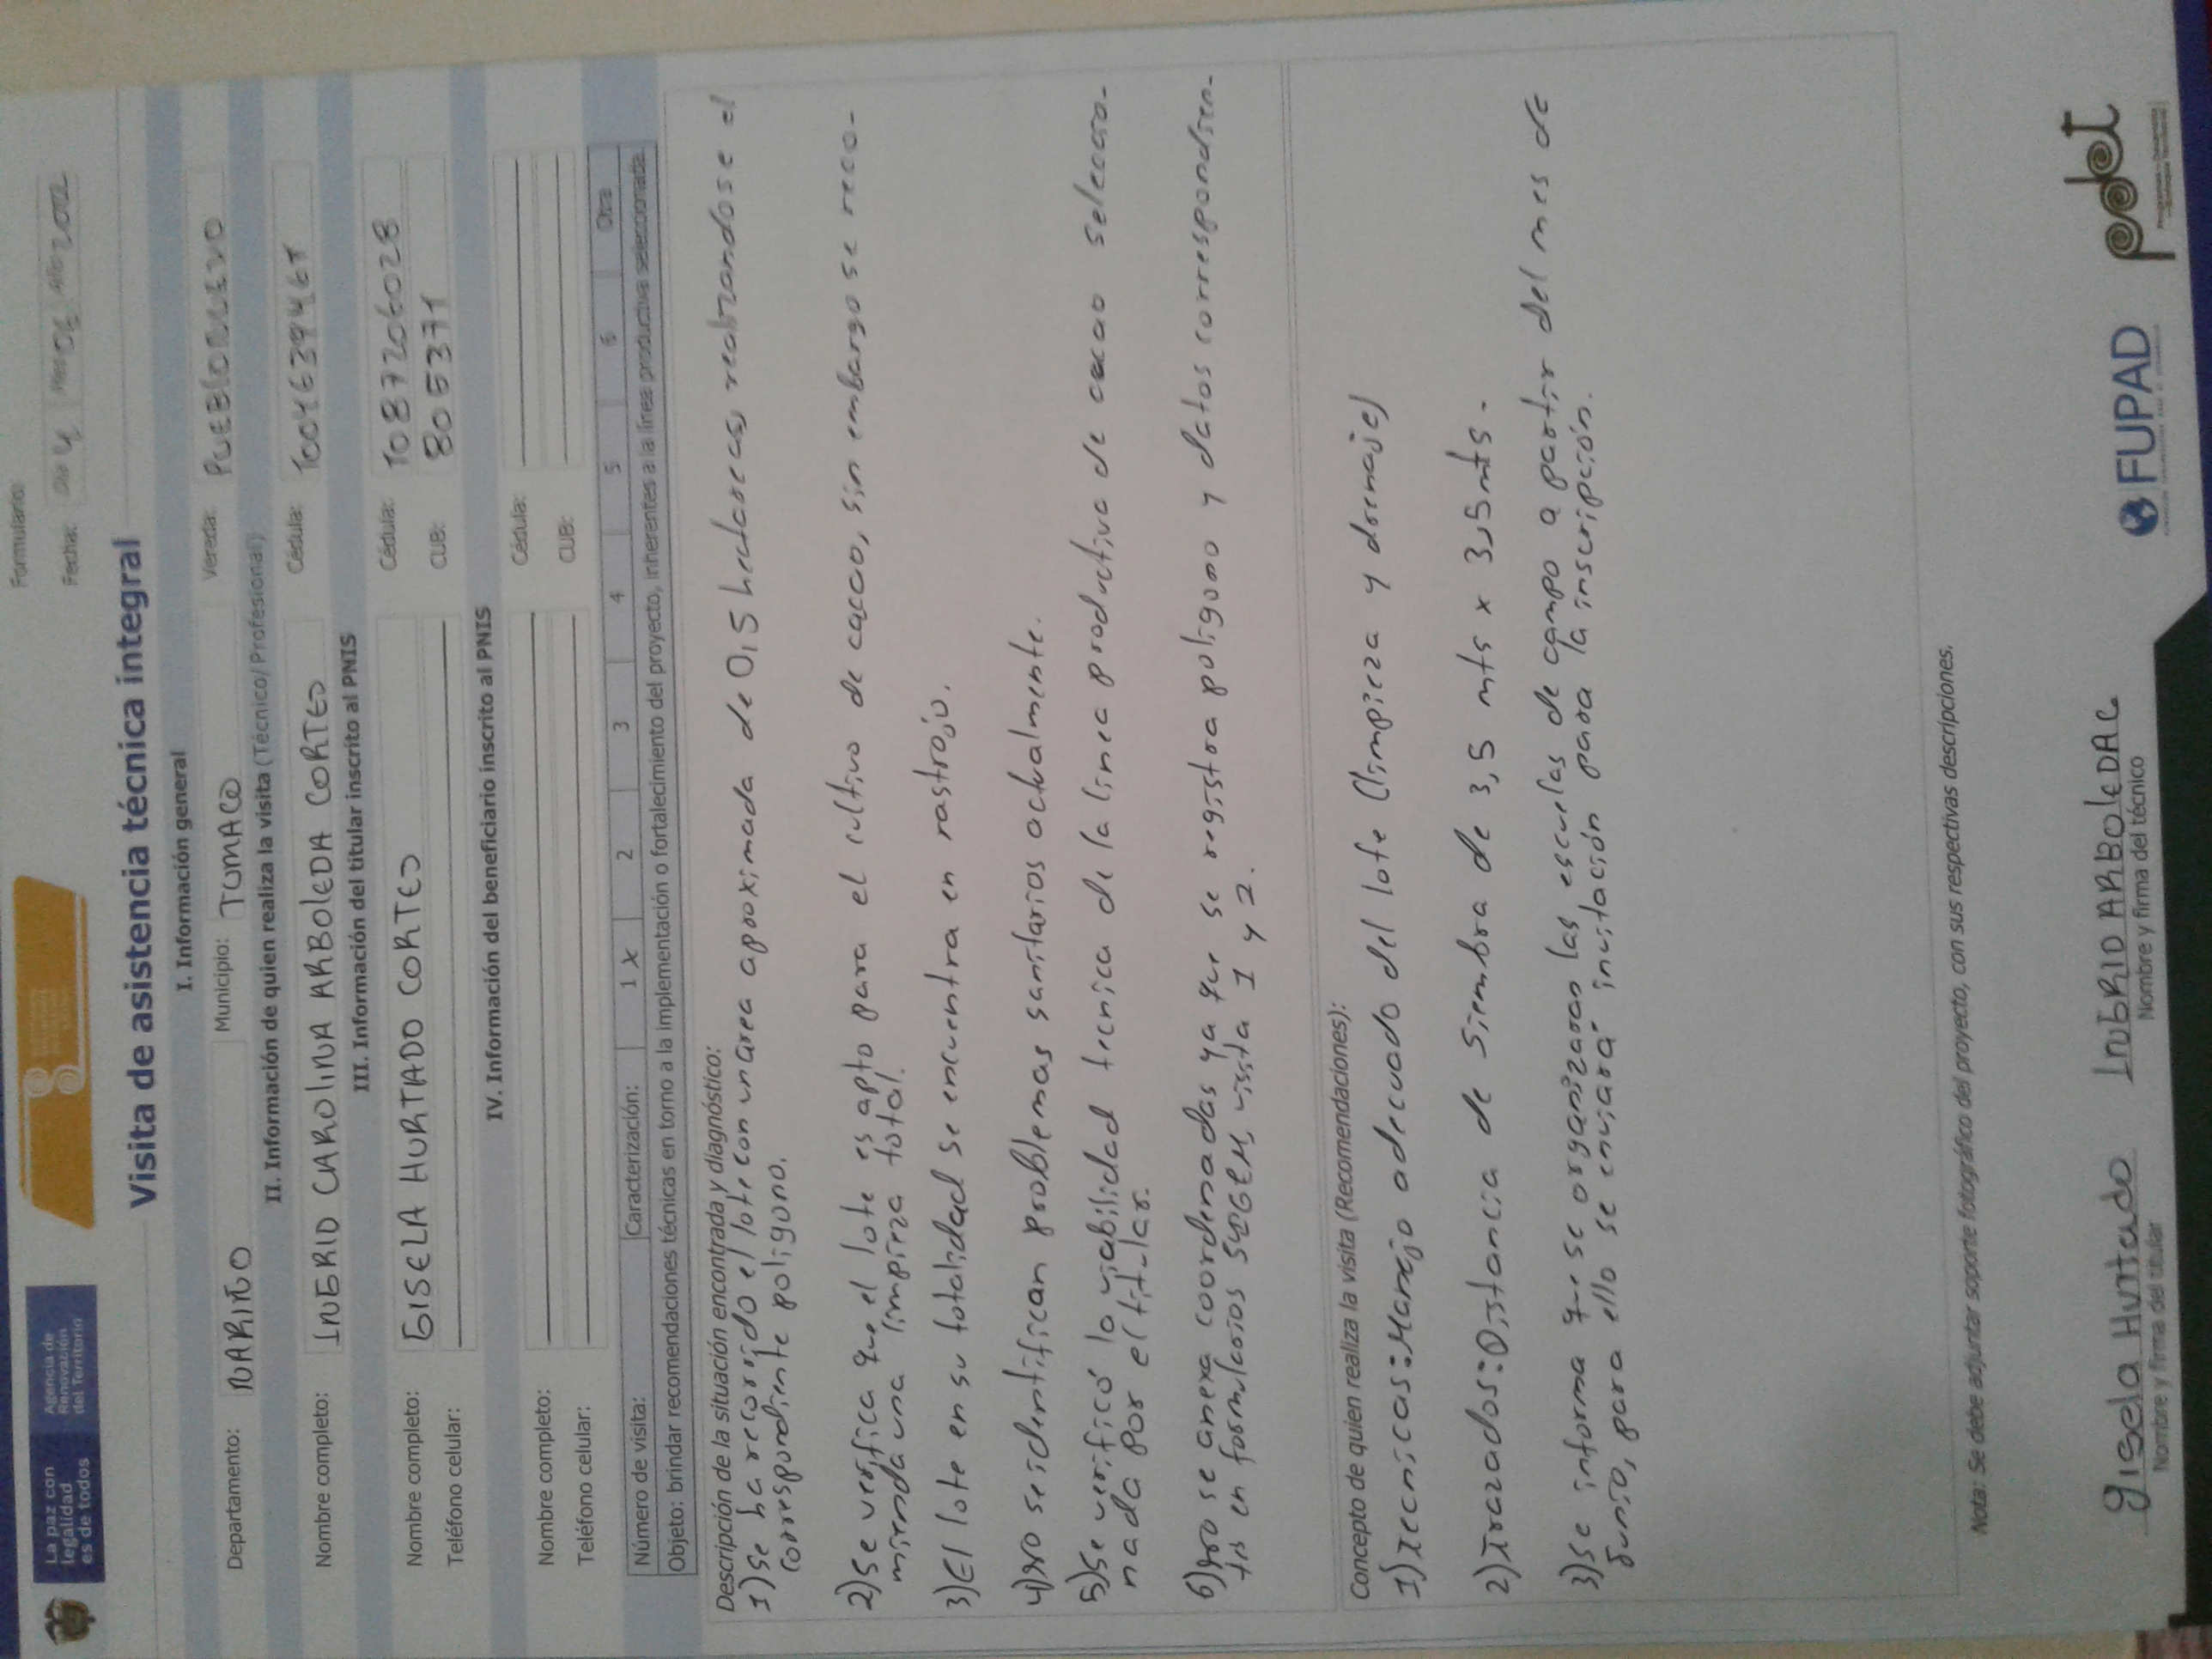 La paz con
legalidad
es de todos
Agencia de
Renovación
del Territorio
Formulario:
Fecha: Día 4 Mes 06
Visita de asistencia técnica integral
I. Información general
Departamento: NARIÑO Municipio: TUMACO Vereda: PUEBLO NUEVO
II. Información de quien realiza la visita (Técnico/Profesional)
Nombre completo: INGRID CAROLINA ARBOLEDA CORTES Cédula:
III. Información del titular inscrito al PNIS
Nombre completo: GISELA HURTADO CORTES Cédula: 1087206028
Teléfono celular: CUB: 805371
IV. Información del beneficiario inscrito al PNIS
Nombre completo: Cédula:
Teléfono celular: CUB:
Número de visita: Caracterización: 1 X 2 3 4 5 6 Otra
Objeto: brindar recomendaciones técnicas en torno a la implementación o fortalecimiento del proyecto, inherentes a la línea productiva seleccionada.
Descripción de la situación encontrada y diagnóstico:
1) se ha recorrido el lote con un area aproximada de 0,5 hectareas, realizandose el
correspondiente poligono.
2) se verifica que el lote es apto para el cultivo de cacao, sin embargo se reco-
mienda una limpieza total.
3) El lote en su totalidad se encuentra en rastrojo.
4) No se identifican problemas sanitarios actualmente.
5) se verificó la viabilidad tecnica de la linea productiva de cacao seleccio-
nada por el titular.
6) No se anexa coordenadas ya que se registra poligono y datos correspondien-
tes en formularios SYGEM, visita 1 y 2.
Concepto de quien realiza la visita (Recomendaciones):
1) Tecnicas: Manejo adecuado del lote (limpieza y drenaje)
2) Trazados: Distancia de siembra de 3,5 mts x 3,5 mts.
3) se informa que se organizaran las escuelas de campo a partir del mes de
Junio, para ello se enviará invitación para la inscripción.
Nota: Se debe adjuntar soporte fotográfico del proyecto, con sus respectivas descripciones.
Gisela Hurtado
Nombre y firma del titular
INGRID ARBOLEDA C.
Nombre y firma del técnico
FUPAD
pdet